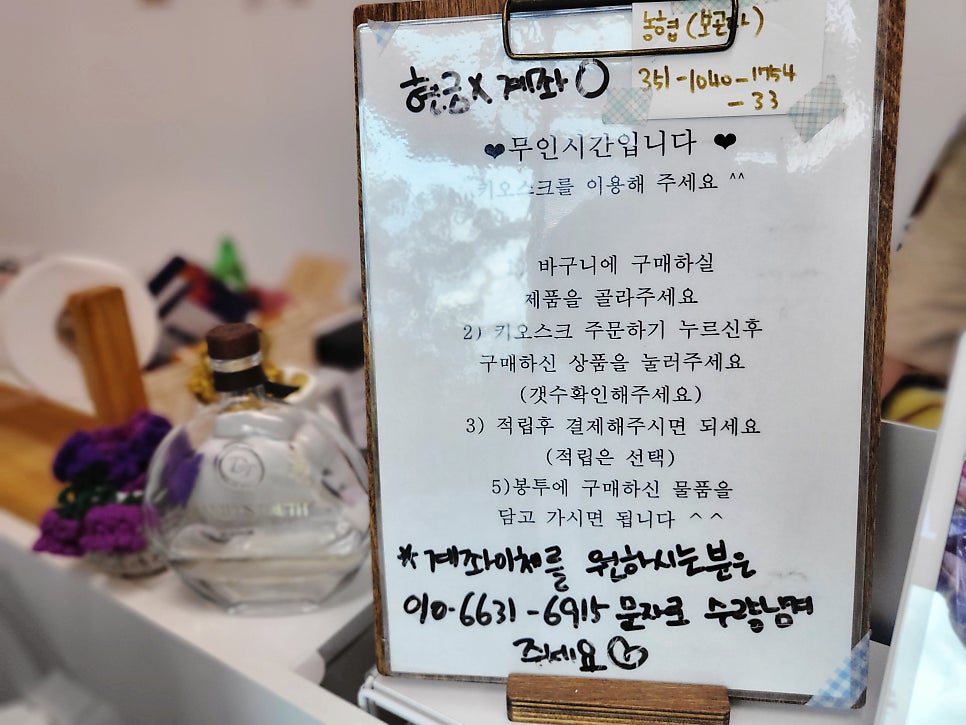 농협 (보곤라)
현금X 계좌O
351-1040-1754
-33
❤무인시간입니다 ❤
키오스크를 이용해 주세요 ^^
바구니에 구매하실
제품을 골라주세요
2) 키오스크 주문하기 누르신후
구매하신 상품을 눌러주세요
(갯수확인해주세요)
3) 적립후 결제해주시면 되세요
(적립은 선택)
5)봉투에 구매하신 물품을
담고 가시면 됩니다 ^ ^
*계좌이체를 원하시는분은
010-6631-6915 문자로 수량남겨
주세요